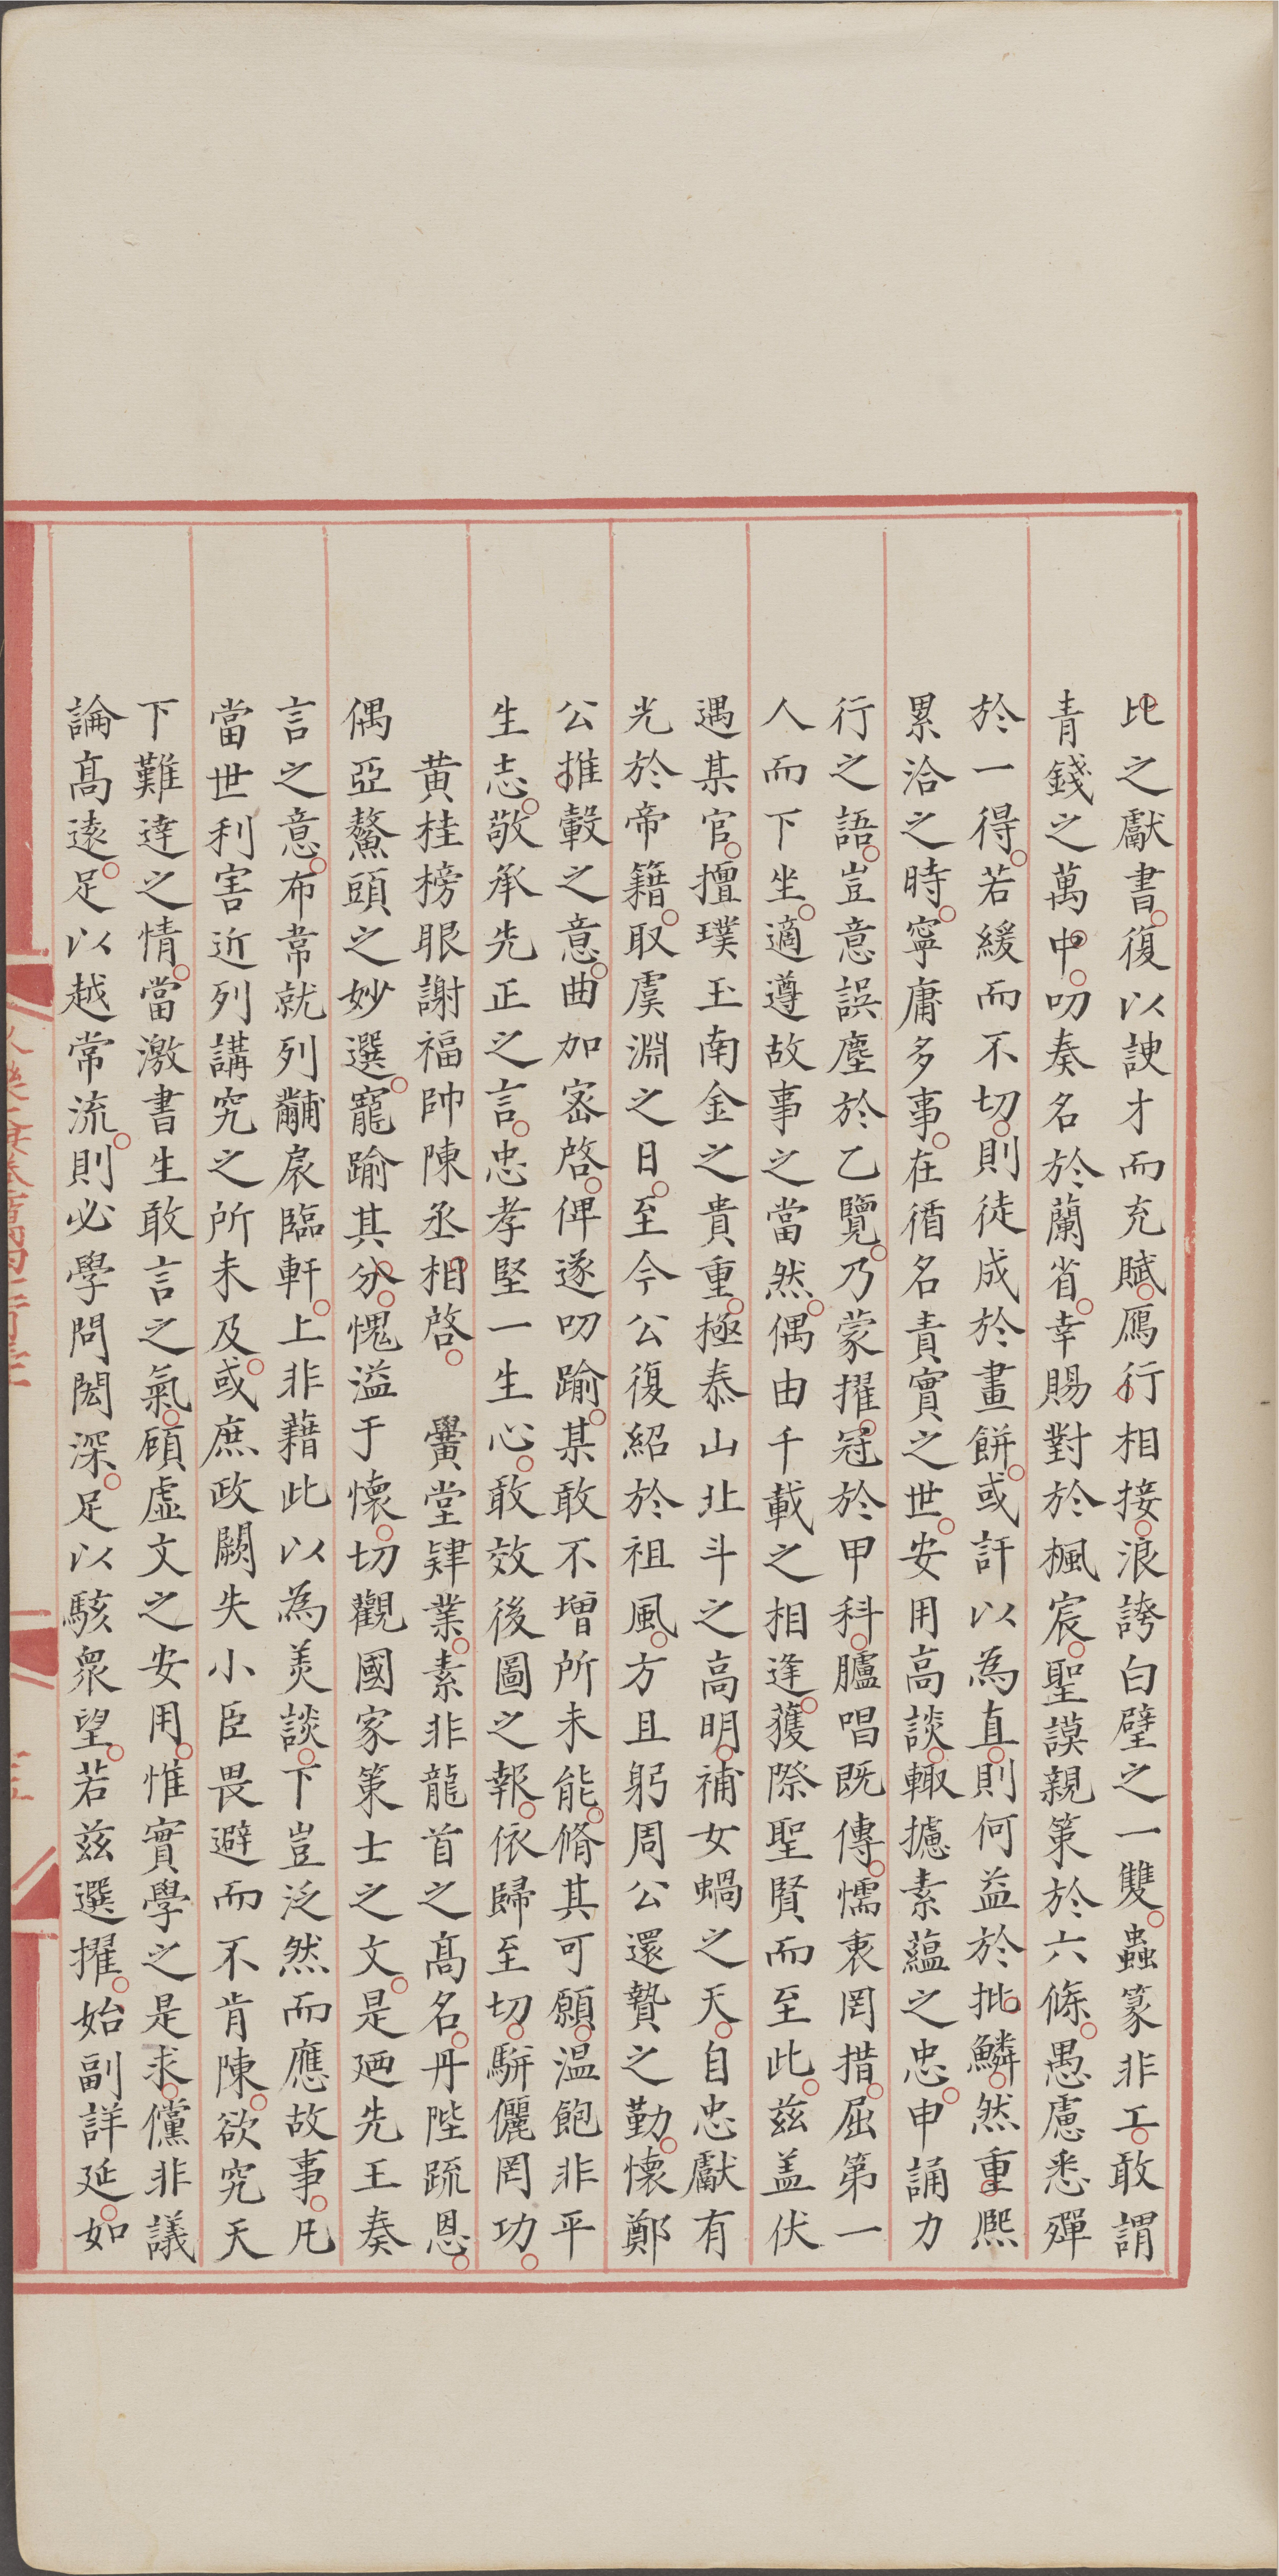 比之獻書復以諛才而充賦鴈行相接浪誇白璧之一雙蟲篆非工敢謂
青錢之萬中叨奏名於蘭省幸賜對於楓宸聖謨親策於六條愚慮悉殫
於一得若緩而不切則徒成於畫餅或訐以為直則何益於批鱗然重熈
累洽之時寧庸多事在循名責實之世安用高談輙攄素蘊之忠申誦力
行之語豈意誤塵於乙覽乃蒙擢冠於甲科臚唱既傳懦衷罔措屈第一
人而下坐適遵故事之當然偶由千載之相逢獲際聖賢而至此兹盖伏
遇某官擅璞玉南金之貴重極泰山北斗之高明補女蝸之天自忠獻有
光於帝籍取虞淵之日至今公復紹於祖風方且躬周公還贄之勤懷鄭
公推轂之意曲加宻啓俾遂叨踰某敢不增所未能脩其可願温飽非平
生志敬承先正之言忠孝堅一生心敢效後圖之報依歸至切駢儷罔功
黄桂榜眼謝福帥陳丞相啓　黌堂肄業素非龍首之髙名丹陛疏恩
偶亞鰲頭之妙選寵踰其分愧溢于懷切觀國家策士之文是廼先王奏
言之意布常就列黼扆臨軒上非藉此以為美談下豈泛然而應故事凡
當世利害近列講究之所未及或庶政闕失小臣畏避而不肯陳欲究天
下難達之情當激書生敢言之氣顧虚文之安用惟實學之是求儻非議
論髙遠足以越常流則必學問閎深足以駭衆望若兹選擢始副詳延如